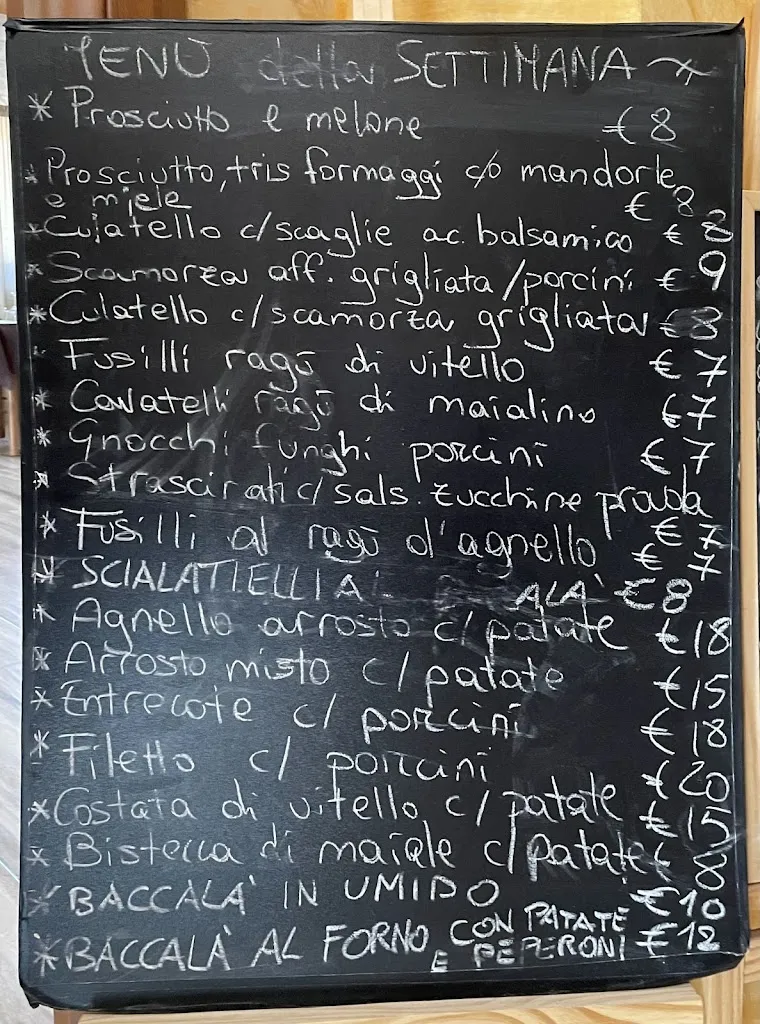 MENÙ della SETTIMANA
* Prosciutto e melone € 8
* Prosciutto, tris formaggi c/o mandorle
e miele € 8
* Culatello c/scaglie ac. balsamico € 8
* Scamorza aff. grigliata/porcini € 9
* Culatello c/scamorza grigliata € 8
Fusilli ragù di vitello € 7
* Cavatelli ragù di maialino €7
* Gnocchi funghi porcini € 7
* Strascinati c/sals. zucchine provola
€ 7
* Fusilli al ragù d'agnello € 7
* SCIALATIELLI AL ALÀ €8
* Agnello arrosto c/patate €18
* Arrosto misto c/patate €15
* Entrecote c/ porcini € 18
* Filetto c/ porcini €20
* Costata di vitello c/patate €15
* Bistecca di maiale c/patate € 8
* BACCALA' IN UMIDO €10
* BACCALÀ AL FORNO CON PATATE
E PEPERONI €12